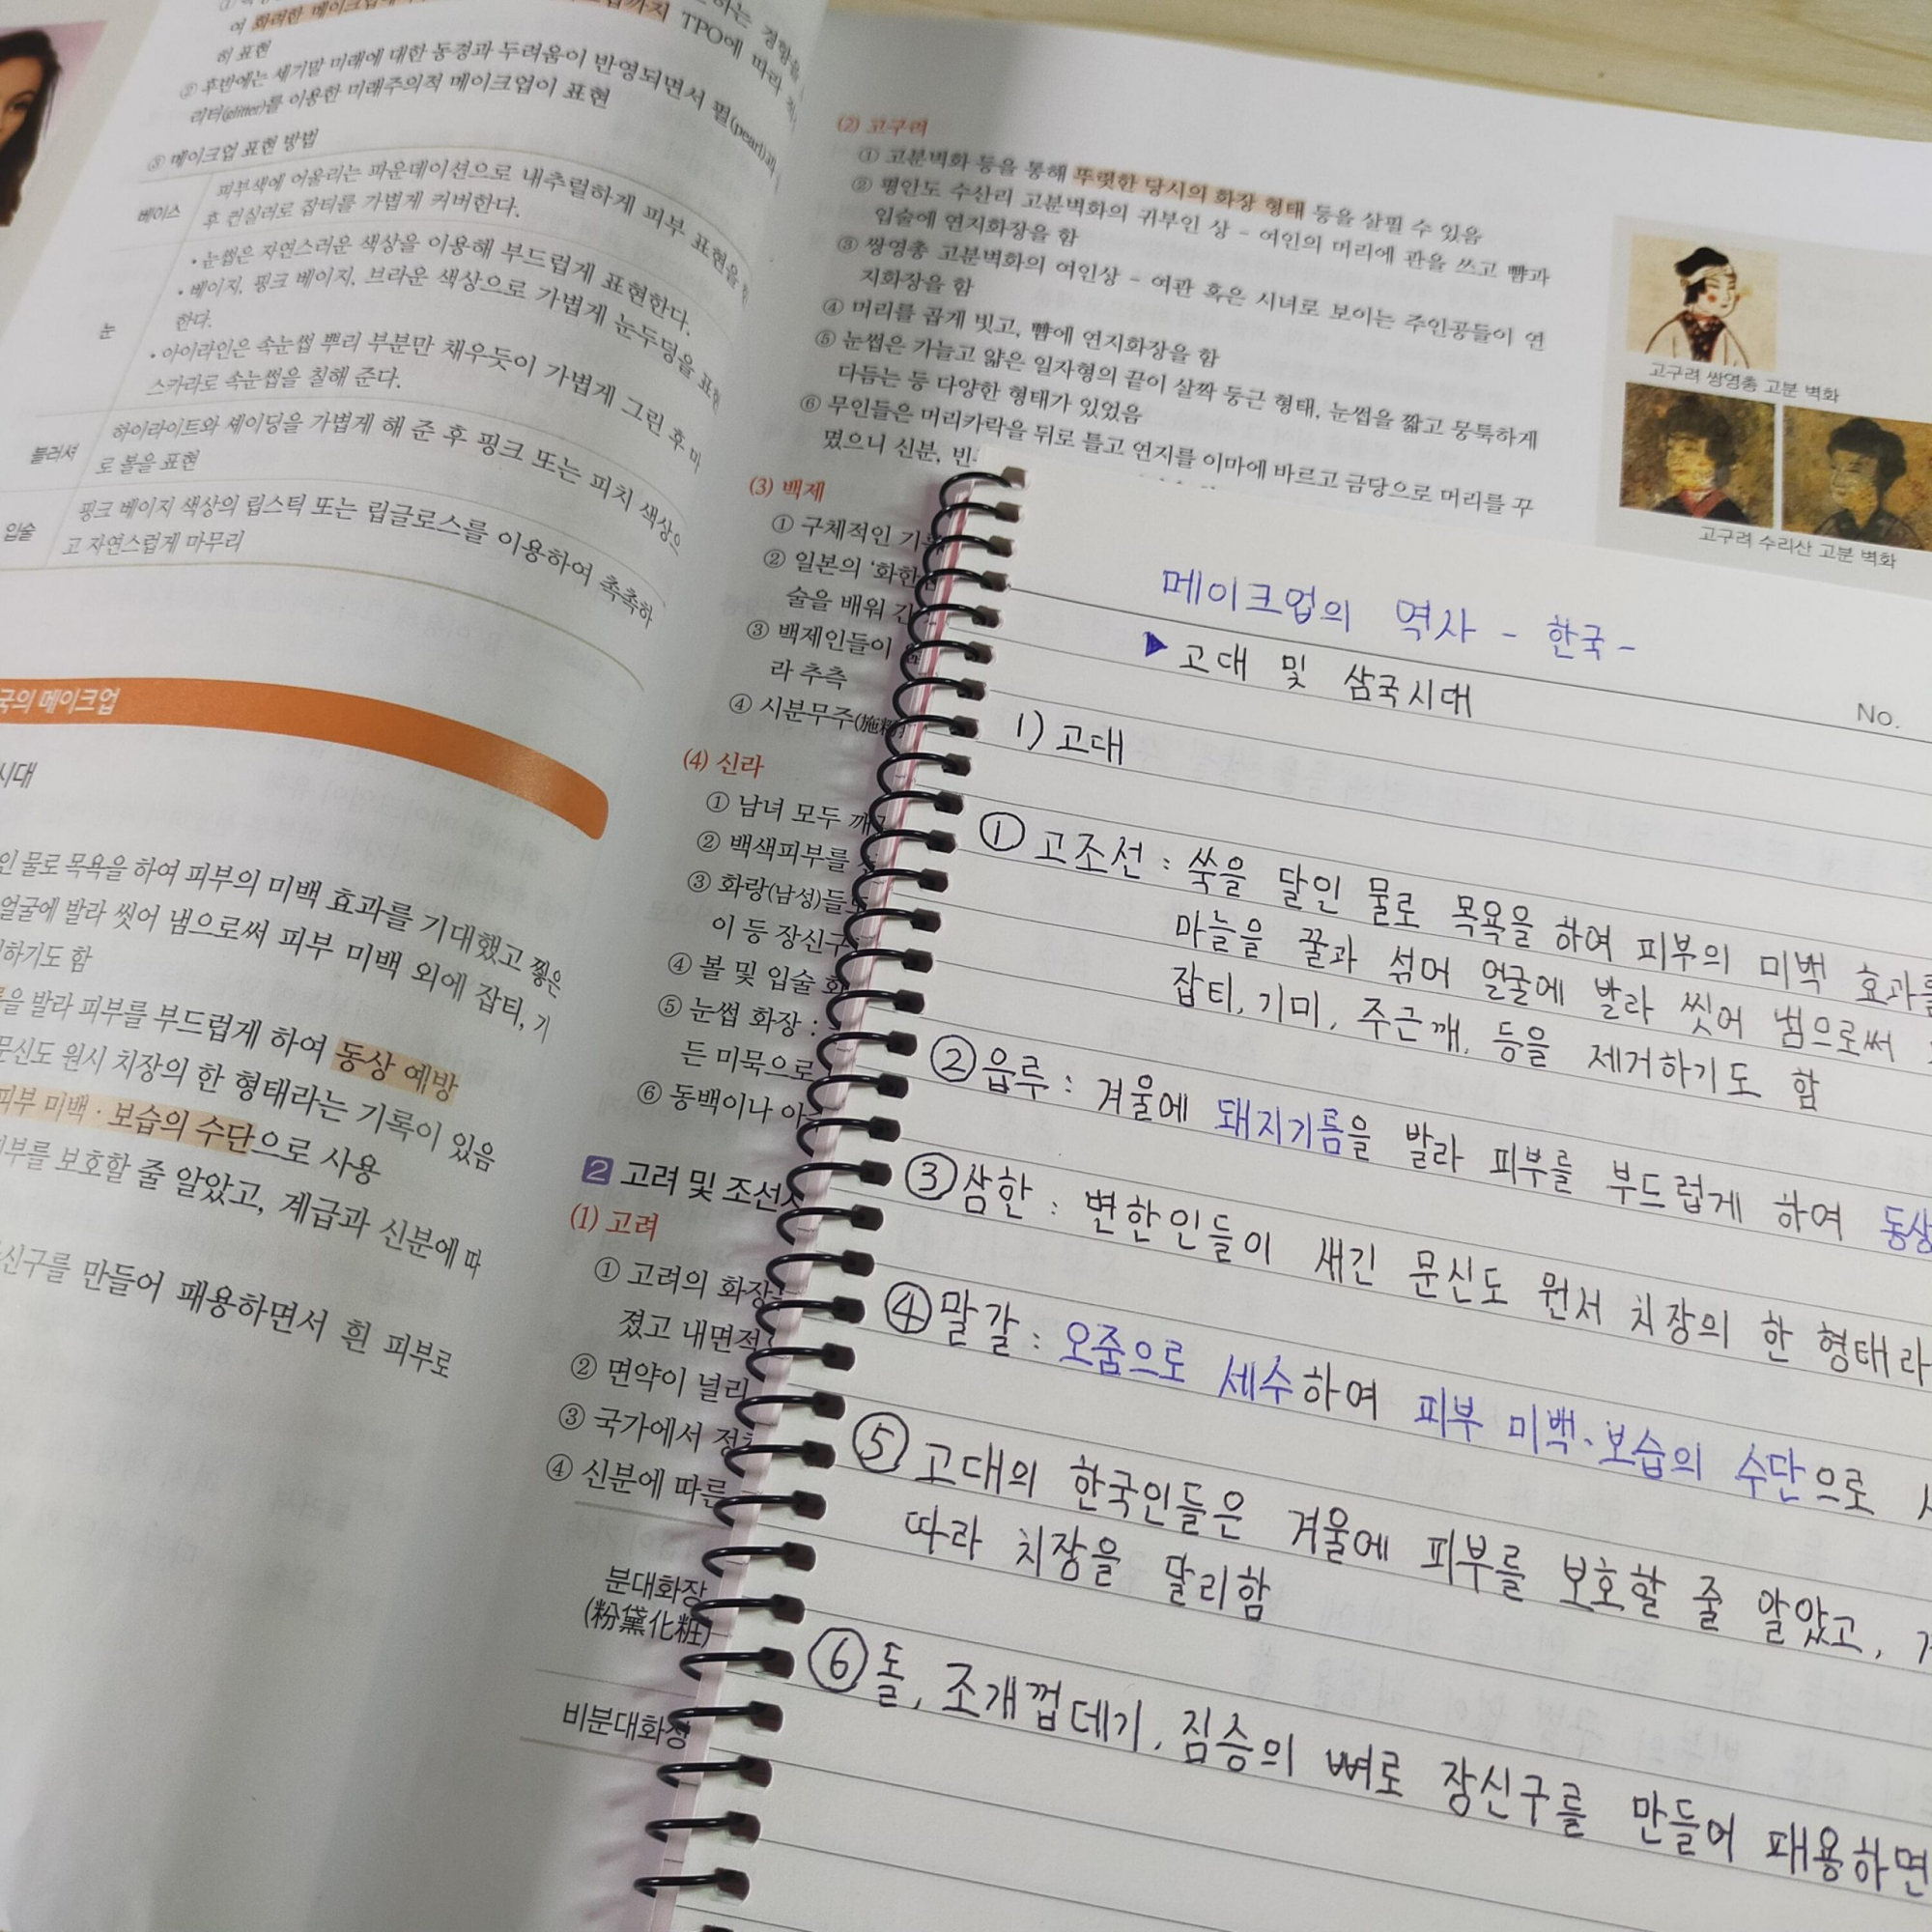 여 화려한 메이크업에
까지 TPO에 따라 적
히 표현
② 후반에는 세기말 미래에 대한 동경과 두려움이 반영되면서 펄(pearl)과
리터(glitter)를 이용한 미래주의적 메이크업이 표현
③ 메이크업 표현 방법
베이스
피부색에 어울리는 파운데이션으로 내추럴하게 피부 표현을
후 컨실러로 잡티를 가볍게 커버한다.
눈
• 눈썹은 자연스러운 색상을 이용해 부드럽게 표현한다.
• 베이지, 핑크 베이지, 브라운 색상으로 가볍게 눈두덩을 표현
한다.
• 아이라인은 속눈썹 뿌리 부분만 채우듯이 가볍게 그린 후 마
스카라로 속눈썹을 칠해 준다.
블러셔
하이라이트와 셰이딩을 가볍게 해 준 후 핑크 또는 피치 색상으
로 볼을 표현
입술
핑크 베이지 색상의 립스틱 또는 립글로스를 이용하여 촉촉하
고 자연스럽게 마무리
국의 메이크업
시대
인 물로 목욕을 하여 피부의 미백 효과를 기대했고 찧은
얼굴에 발라 씻어 냄으로써 피부 미백 외에 잡티, 기
하기도 함
을 발라 피부를 부드럽게 하여 동상 예방
문신도 원시 치장의 한 형태라는 기록이 있음
피부 미백·보습의 수단으로 사용
피부를 보호할 줄 알았고, 계급과 신분에 따
신구를 만들어 패용하면서 흰 피부로
(2) 고구려
① 고분벽화 등을 통해 뚜렷한 당시의 화장 형태 등을 살필 수 있음
② 평안도 수산리 고분벽화의 귀부인 상 - 여인의 머리에 관을 쓰고 뺨과
입술에 연지화장을 함
③ 쌍영총 고분벽화의 여인상 - 여관 혹은 시녀로 보이는 주인공들이 연
지화장을 함
④ 머리를 곱게 빗고, 뺨에 연지화장을 함
⑤ 눈썹은 가늘고 얇은 일자형의 끝이 살짝 둥근 형태, 눈썹을 짧고 뭉툭하게
다듬는 등 다양한 형태가 있었음
⑥ 무인들은 머리카락을 뒤로 틀고 연지를 이마에 바르고 금당으로 머리를 꾸
몄으니 신분, 빈
고구려 쌍영총 고분 벽화
고구려 수리산 고분 벽화
(3) 백제
① 구체적인 기
② 일본의 '화한
술을 배워 간
③ 백제인들이
라 추측
④ 시분무주(施粉
(4) 신라
① 남녀 모두 깨
② 백색피부를
③ 화랑(남성)들
이 등 장신구
④ 볼 및 입술 화
⑤ 눈썹 화장 :
든 미묵으로
⑥ 동백이나 아
2 고려 및 조선시
(1) 고려
① 고려의 화장
졌고 내면적
② 면약이 널리
③ 국가에서 정
④ 신분에 따른
분대화장
(粉黛化粧)
비분대화장
메이크업의 역사 - 한국 -
▶ 고대 및 삼국시대
No.
1) 고대
① 고조선 : 쑥을 달인 물로 목욕을 하여 피부의 미백 효과를
마늘을 꿀과 섞어 얼굴에 발라 씻어 냄으로써
잡티, 기미, 주근깨, 등을 제거하기도 함
② 읍루 : 겨울에 돼지기름을 발라 피부를 부드럽게 하여 동상
③ 삼한 : 변한인들이 새긴 문신도 원서 치장의 한 형태라
④ 말갈 : 오줌으로 세수하여 피부 미백·보습의 수단으로
⑤ 고대의 한국인들은 겨울에 피부를 보호할 줄 알았고,
따라 치장을 달리함
⑥ 돌, 조개껍데기, 짐승의 뼈로 장신구를 만들어 패용하면